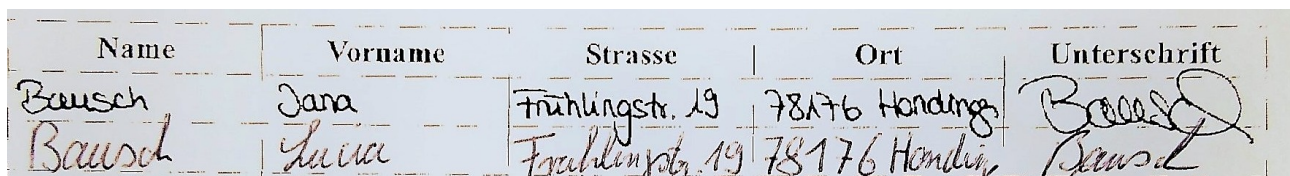 Name Vorname Strasse Ort Unterschrift
Bausch Jana Frühlingstr. 19 78176 Hondingen Bausch
Bausch Lucia Frühlingstr. 19 78176 Hondin Bausch